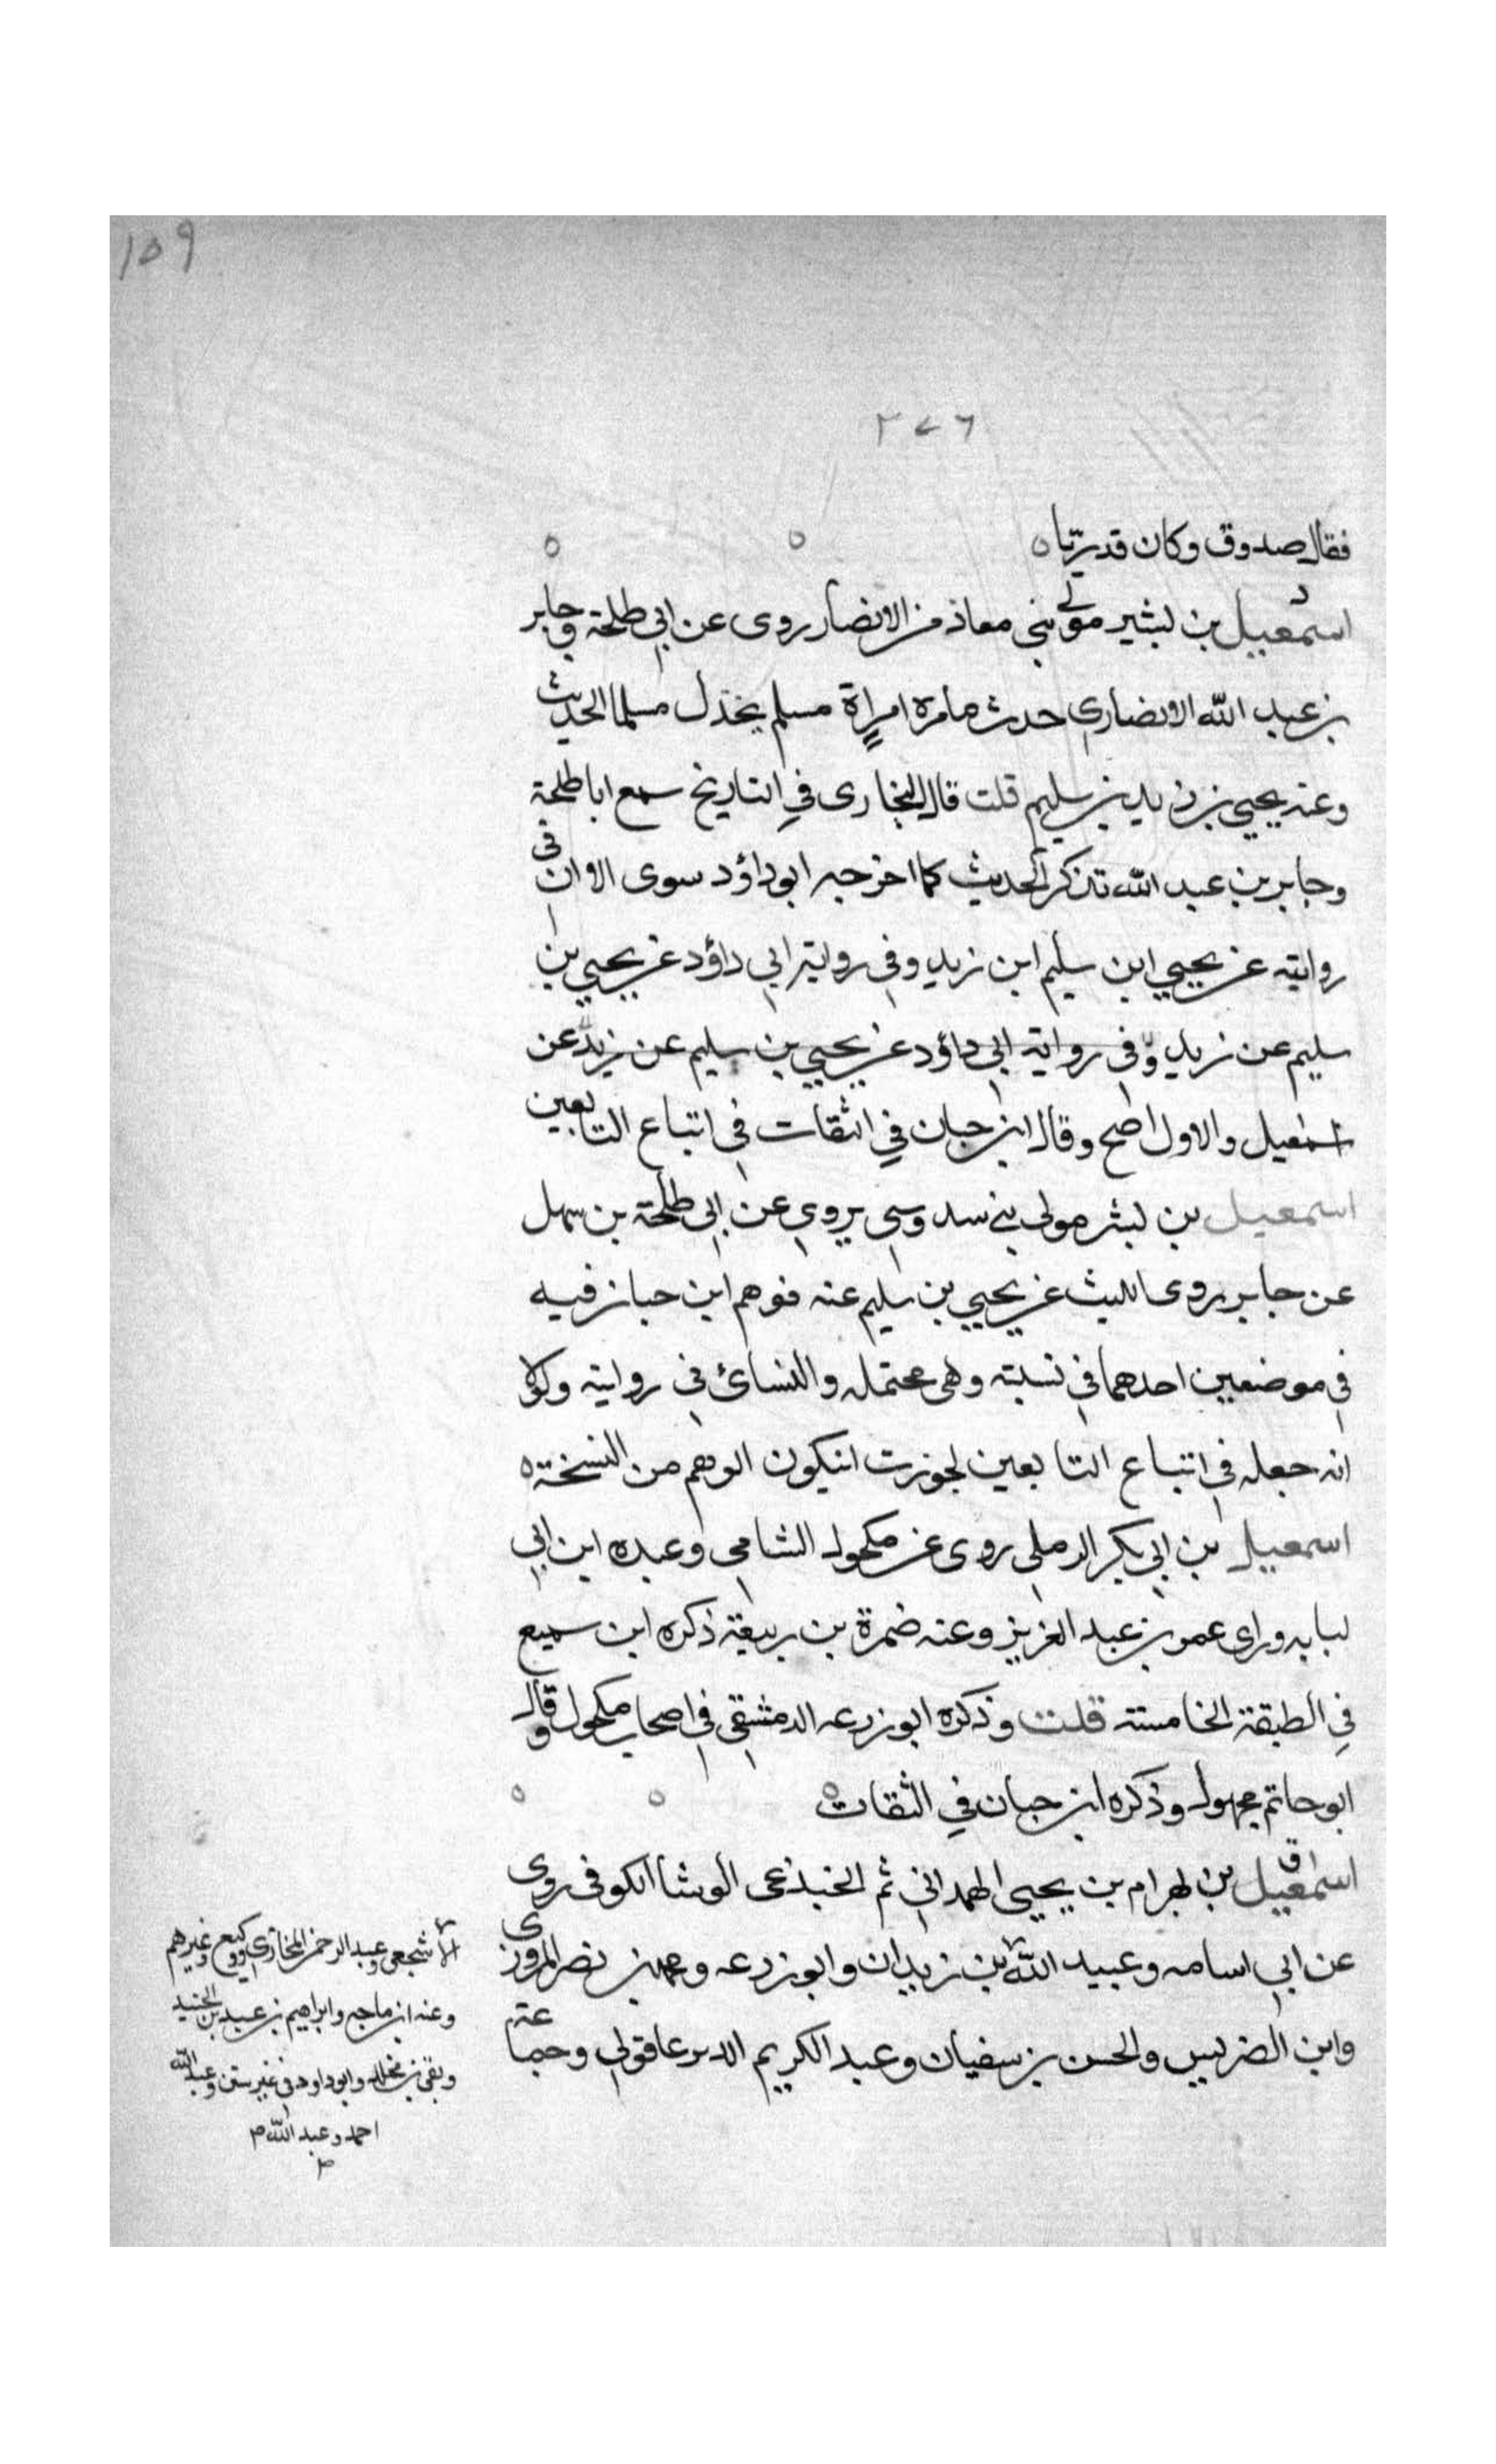 ١٥٩
٢٧٦
فقال صدوق وكان قدريّا ه
د
اسمعيل بن بشير مولى بني معاذ من الانصار روى عن ابي طلحة وجابر
بن عبد الله الانصاري حدث مامره امراة مسلم يخذل مسلما الحديث
وعنه يحيي بن زيد بن سليم قلت قال البخارى في التاريخ سمع ابا طلحة
وجابر بن عبد الله تذكر الحديث كما اخرجه ابو داؤد سوى الا ان في
روايته عن يحيي ابن سليم ابن زيد وفى رواية ابي داؤد عن يحيي بن
سليم عن زيد وفى رواية ابي داؤد عن يحيي بن سليم عن زيد عن
اسمعيل والاول اصح وقال ابن حبان في الثقات في اتباع التابعين
اسمعيل بن بشر مولى بني سدوسي يروي عن ابي طلحة بن سهل
عن جابر روى الليث عن يحيي بن سليم عنه فوهم ابن حبان فيه
في موضعين احدهما في نسبته وهى محتمله والنسائ في روايته ولولا
انه جعله في اتباع التابعين لجوزت انيكون الوهم من النسخة ه
اسمعيل بن ابي بكر الرملي روى عن مكحول الشامي وعبده ابن ابي
لبابه وراى عمر بن عبد العزيز وعنه ضمرة بن ربيعة ذكره ابن سميع
في الطبقة الخامسة قلت وذكره ابو زرعه الدمشقي في اصحاب مكحول وقال
ابو حاتم مجهول وذكره ابن حبان في الثقات
ق
اسمعيل بن بهرام بن يحيى الهمداني ثم الخبذعى الوشا الكوفى روى
عن ابي اسامه وعبيد الله بن زيدان وابو زرعه ومحمد بن نصر المروزى
وابن الضريس والحسن بن سفيان وعبد الكريم الدير عاقولي وجماعة
الاشجعي وعبد الرحمن المحاربي ووكيع وغيرهم
وعنه ابن ماجه وابراهيم بن عبد بن الجنيد
وبقى بن مخلد وابو داود في غير سنن وعبد الله
احمد وعبد الله م
م